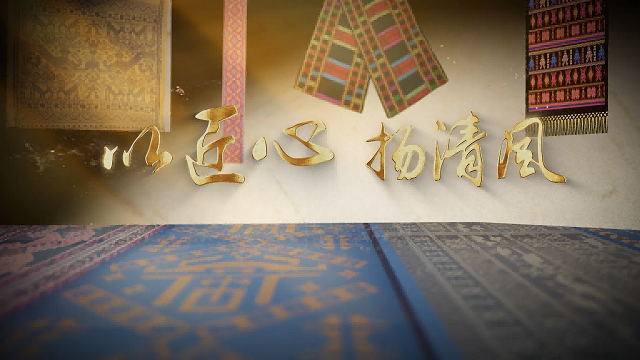 以匠心 扬清风